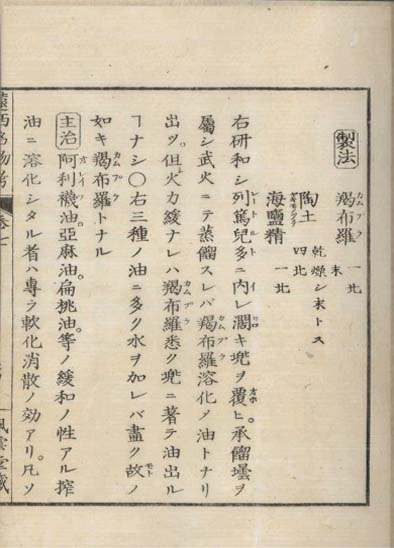 製法
羯布羅 末 一北
カムフラ
陶土 乾燥シ末トス 四北
海鹽精 一北
右研和シ列篤兒多ニ内レ濶キ兜ヲ覆ヒ。承餾壜ヲ
屬シ武火ニテ蒸餾スレバ羯布羅溶化メ油トナリ
出ヅ。但火力緩ナレハ羯布羅悉ク兜ニ著テ油出ル
ヿナシ〇右三種ノ油ニ多ク水ヲ加レバ盡ク故ノ
如キ羯布羅トナル
主治 阿利襪油亞麻油。扁桃油。等ノ緩和ノ性アル搾
油ニ溶化シタル者ハ專ラ軟化消散ノ効アリ。凡ソ
遠西名物考 卷七
風雲堂藏